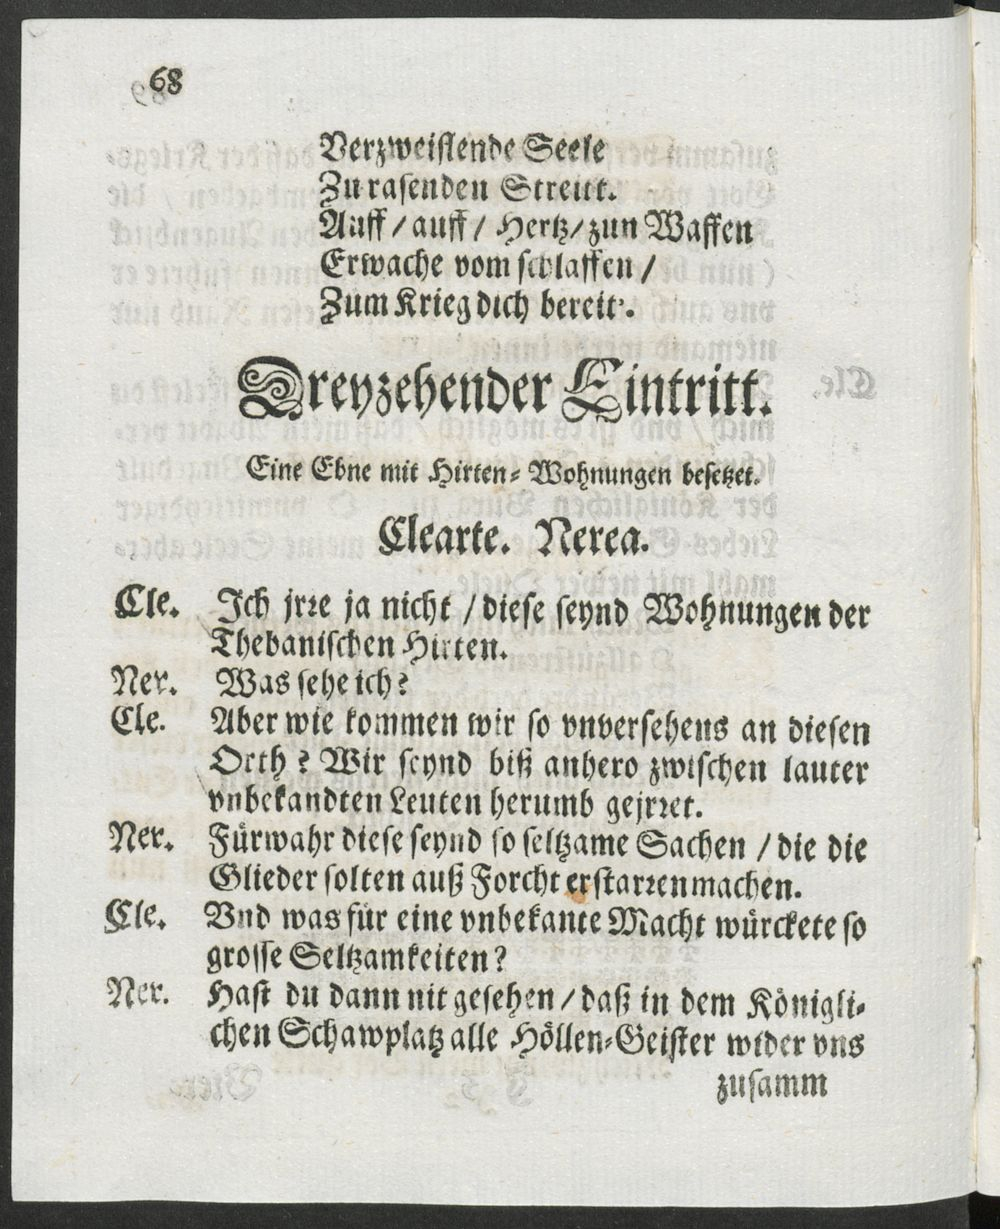 68
Verzweiflende Seele
Zu rasenden Streitt.
Auff / auff / Hertz / zun Waffen
Erwache vom schlaffen /
Zum Krieg dich bereit'.
Dreyzehender Eintritt.
Eine Ebne mit Hirten-Wohnungen besetzet.
Clearte. Nerea.
Cle. Ich jrre ja nicht / diese seynd Wohnungen der
Thebanischen Hirten.
Ner. Was sehe ich?
Cle. Aber wie kommen wir so vnversehens an diesen
Orth? Wir seynd biß anhero zwischen lauter
vnbekandten Leuten herumb gejrret.
Ner. Fürwahr diese seynd so seltzame Sachen / die die
Glieder solten auß Forcht erstarren machen.
Cle. Vnd was für eine vnbekante Macht würckete so
grosse Seltzamkeiten?
Ner. Hast du dann nit gesehen / daß in dem Königli-
chen Schawplatz alle Höllen-Geister wider vns
zusamm